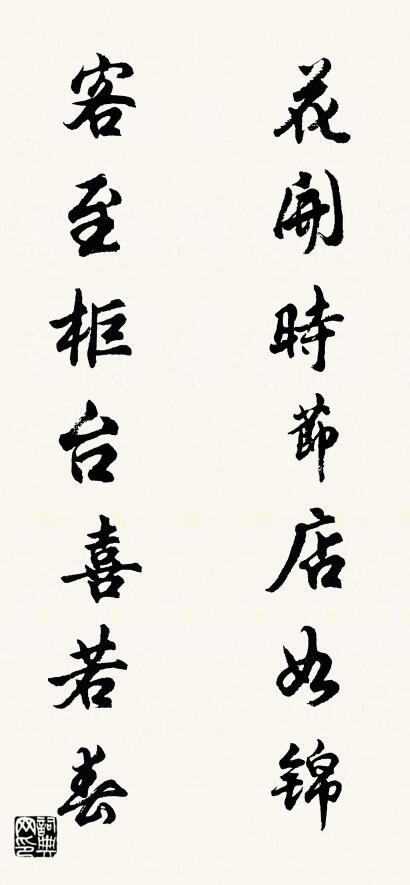 花開時節店如錦
客至柜台喜若春
詞典網印